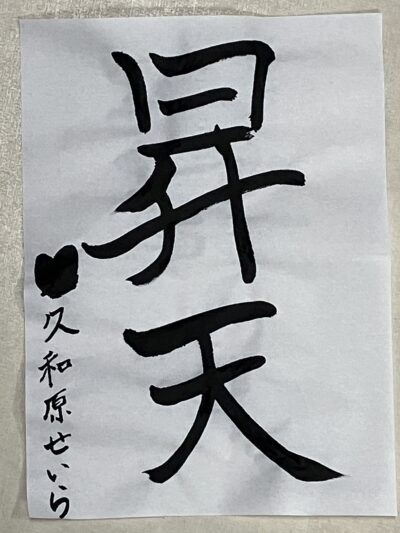 昇天
♥久和原せいら